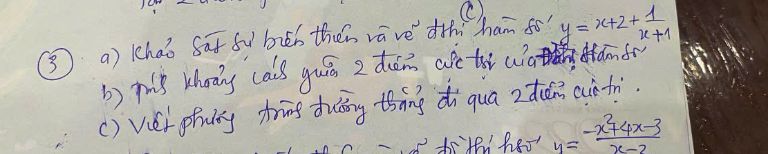 (C)
③ a) Khảo sát sự biến thiên và vẽ đthị hàm số y = x+2+ 1/x+1
b) Tính khoảng cách giữa 2 điểm cực trị của hàm số
c) Viết phương trình đường thẳng đi qua 2 điểm cực trị.
đồ thị hsố y = -x²+4x-3/x-2